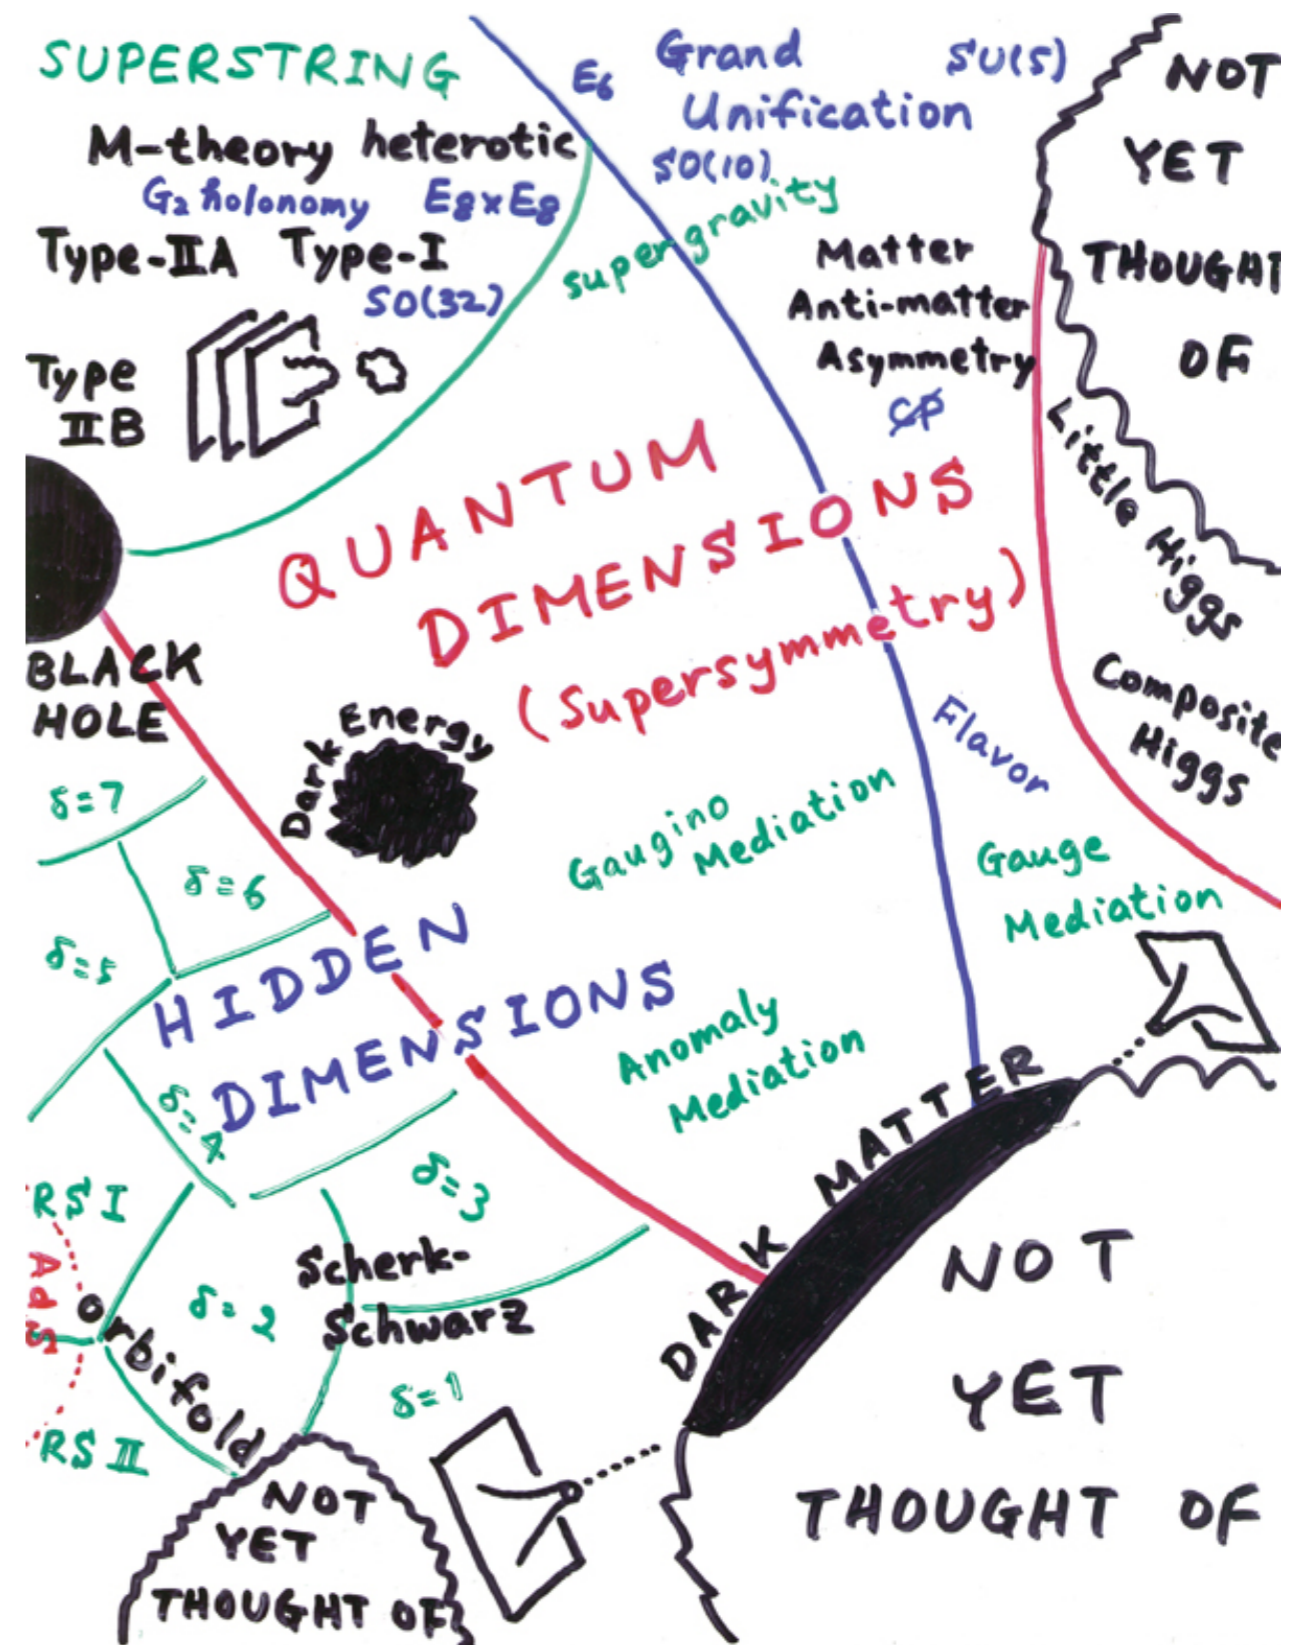 SUPERSTRING
M-theory heterotic
G₂ holonomy E8×E8
Type-IIA Type-I
SO(32)
Type
IIB
E6
Grand
Unification
SU(5)
SO(10)
supergravity
Matter
Anti-matter
Asymmetry
CP
NOT
YET
THOUGHT
OF
Little Higgs
Composite
Higgs
QUANTUM
DIMENSIONS
(Supersymmetry)
BLACK
HOLE
Dark Energy
Flavor
Gaugino
Mediation
Gauge
Mediation
Anomaly
Mediation
δ=7
δ=6
δ=5
HIDDEN
DIMENSIONS
δ=4
δ=3
RS I
AdS
Orbifold
δ=2
Scherk-
Schwarz
δ=1
RS II
DARK MATTER
NOT
YET
THOUGHT OF
NOT
YET
THOUGHT OF